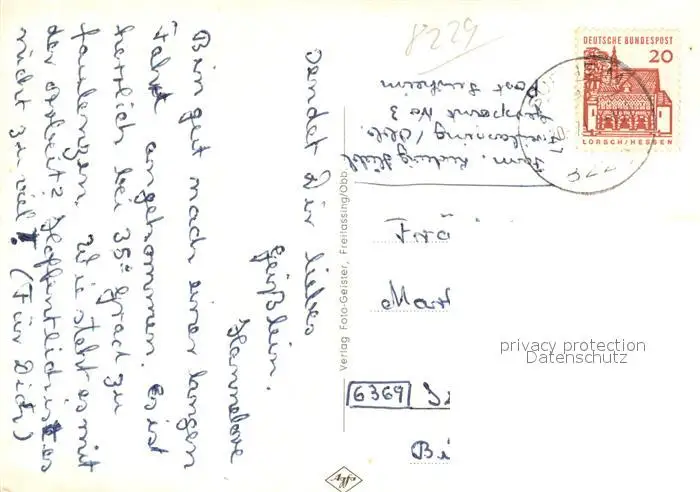 8229
DEUTSCHE BUNDESPOST
20
LORSCH/HESSEN
822
Fam. Ludwig
Freilassing/Obb.
No 3
Post
Bin gut nach einer langen
Fahrt angekommen. Es ist
herrlich bei 35° Grad zu
faulenzen. Wie steht es mit
der Arbeit? Hoffentlich ist es
nicht zu viel! (Für Dich)
Sendet Dir liebes
Grüßlein.
Hannelore
Verlag Foto-Geister, Freilassing/Obb.
Frä
Mar
6369
Bi
privacy protection
Datenschutz
Agfa